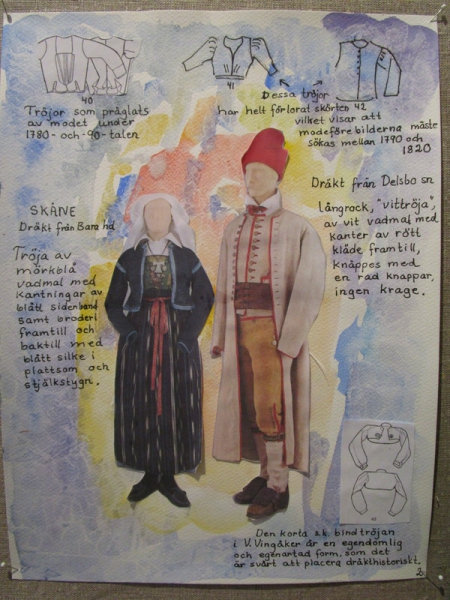 40
Tröjor som präglats
av modet under
1780-och-90-talen
41
Dessa tröjor
har helt förlorat skörten 42
vilket visar att
modeförebilderna måste
sökas mellan 1790 och
1820
SKÅNE
Dräkt från Bara hd
Tröja av
mörkblå
vadmal med
kantningar av
blått sidenband
samt broderi
framtill och
baktill med
blått silke i
plattsöm och
stjälkstygn.
Dräkt från Delsbo sn
långrock, "vittröja",
av vit vadmal med
kanter av rött
kläde framtill,
knäppes med
en rad knappar,
ingen krage.
43
Den korta s.k. bindtröjan
i V. Vingåker är en egendomlig
och egenartad form, som det
är svårt att placera dräkthistoriskt.
2